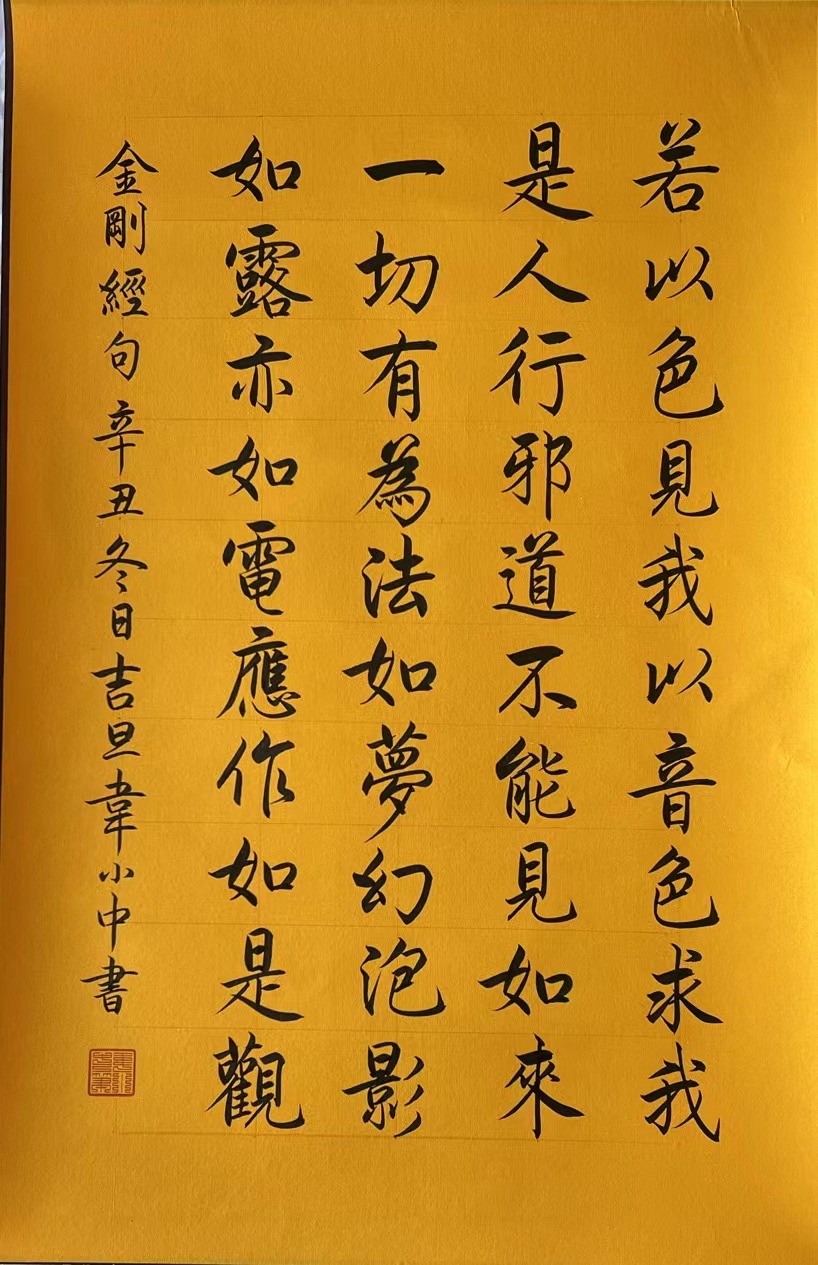 若以色見我以音色求我
是人行邪道不能見如來
一切有為法如夢幻泡影
如露亦如電應作如是觀
金剛經句辛丑冬日吉旦韋小中書